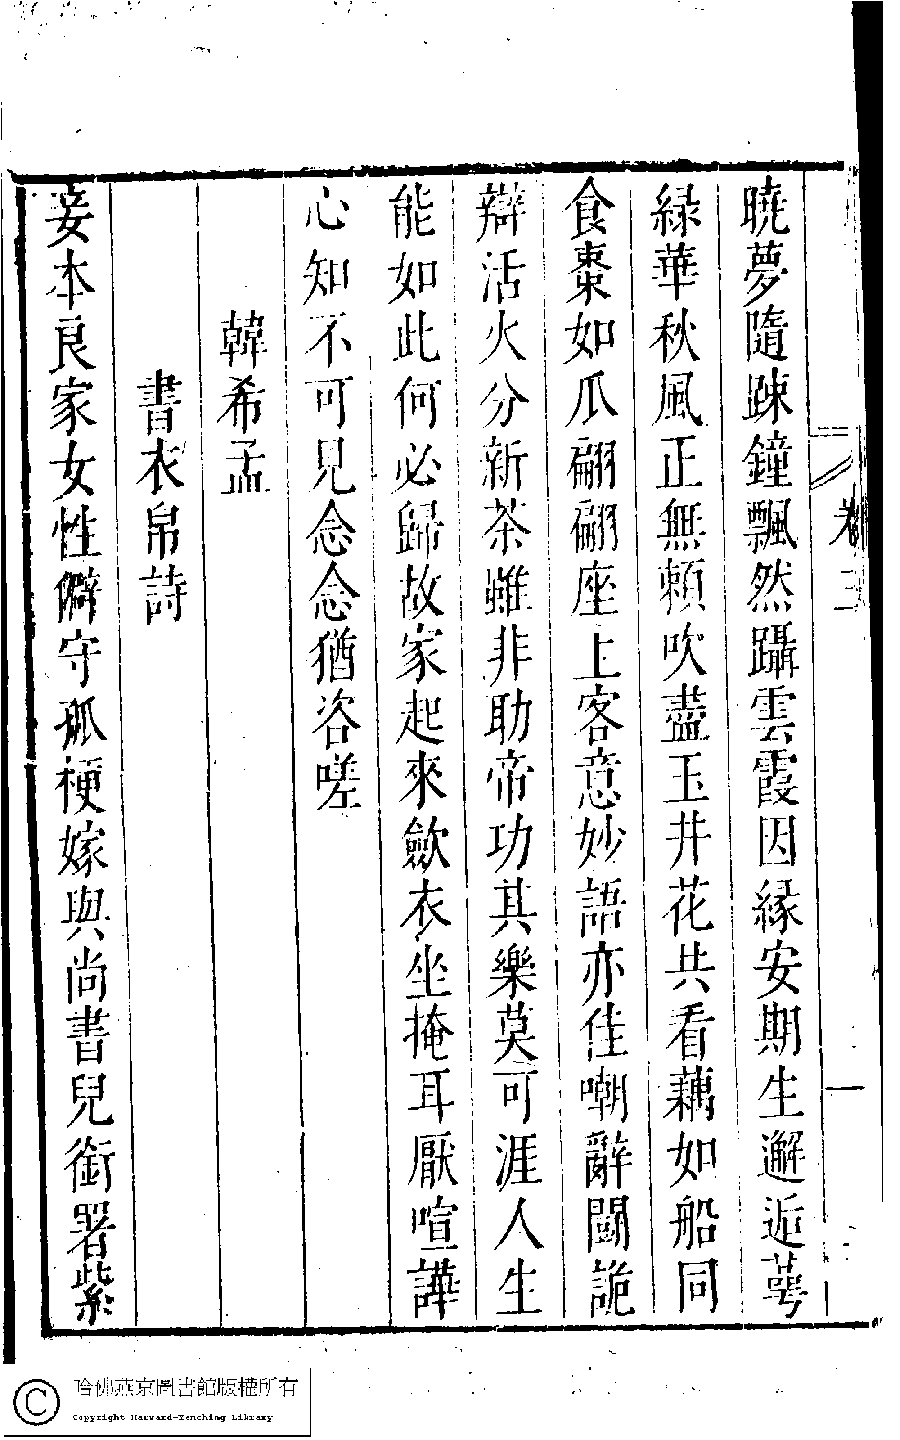 卷三
一
曉夢隨踈鐘飄然躡雲霞因緣安期生邂逅萼
緑華秋風正無頼吹盡玉井花共看藕如船同
食棗如瓜翩翩座上客意妙語亦佳嘲辭鬪詭
辯活火分新茶雖非助帝功其樂莫可涯人生
能如此何必歸故家起來歛衣坐掩耳厭喧譁
心知不可見念念猶咨嗟
韓希孟
書衣帛詩
妾本良家女性僻守孤梗嫁與尚書兒銜署紫
哈佛燕京圖書館版權所有
Copyright Harvard-Yenching Library